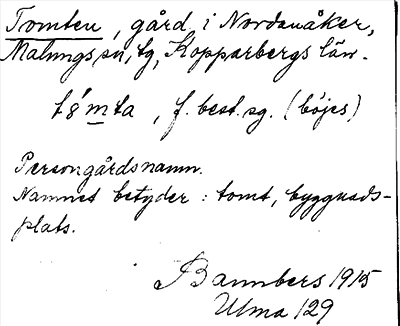 Tomten, gård i Nordanåker,
Malungs sn, tg, Kopparbergs län.
tomta, f. best. sg. (böjes)
Persongårdsnamn.
Namnet betyder: tomt, byggnads-
plats.
Bannbers 1915
Ulma 129